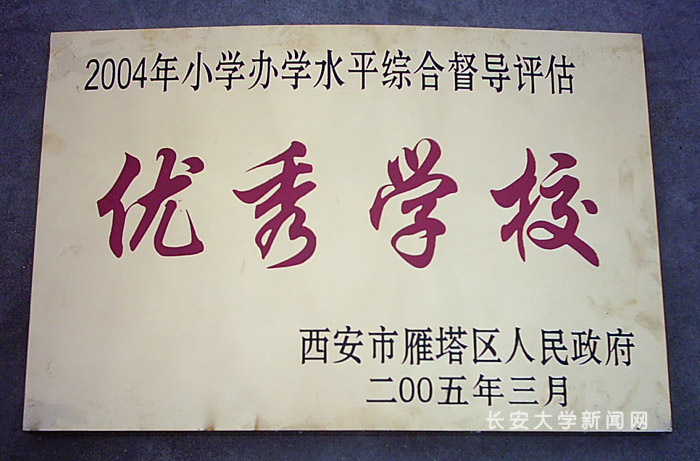 2004年小学办学水平综合督导评估
优秀学校
西安市雁塔区人民政府
二00五年三月
长安大学新闻网